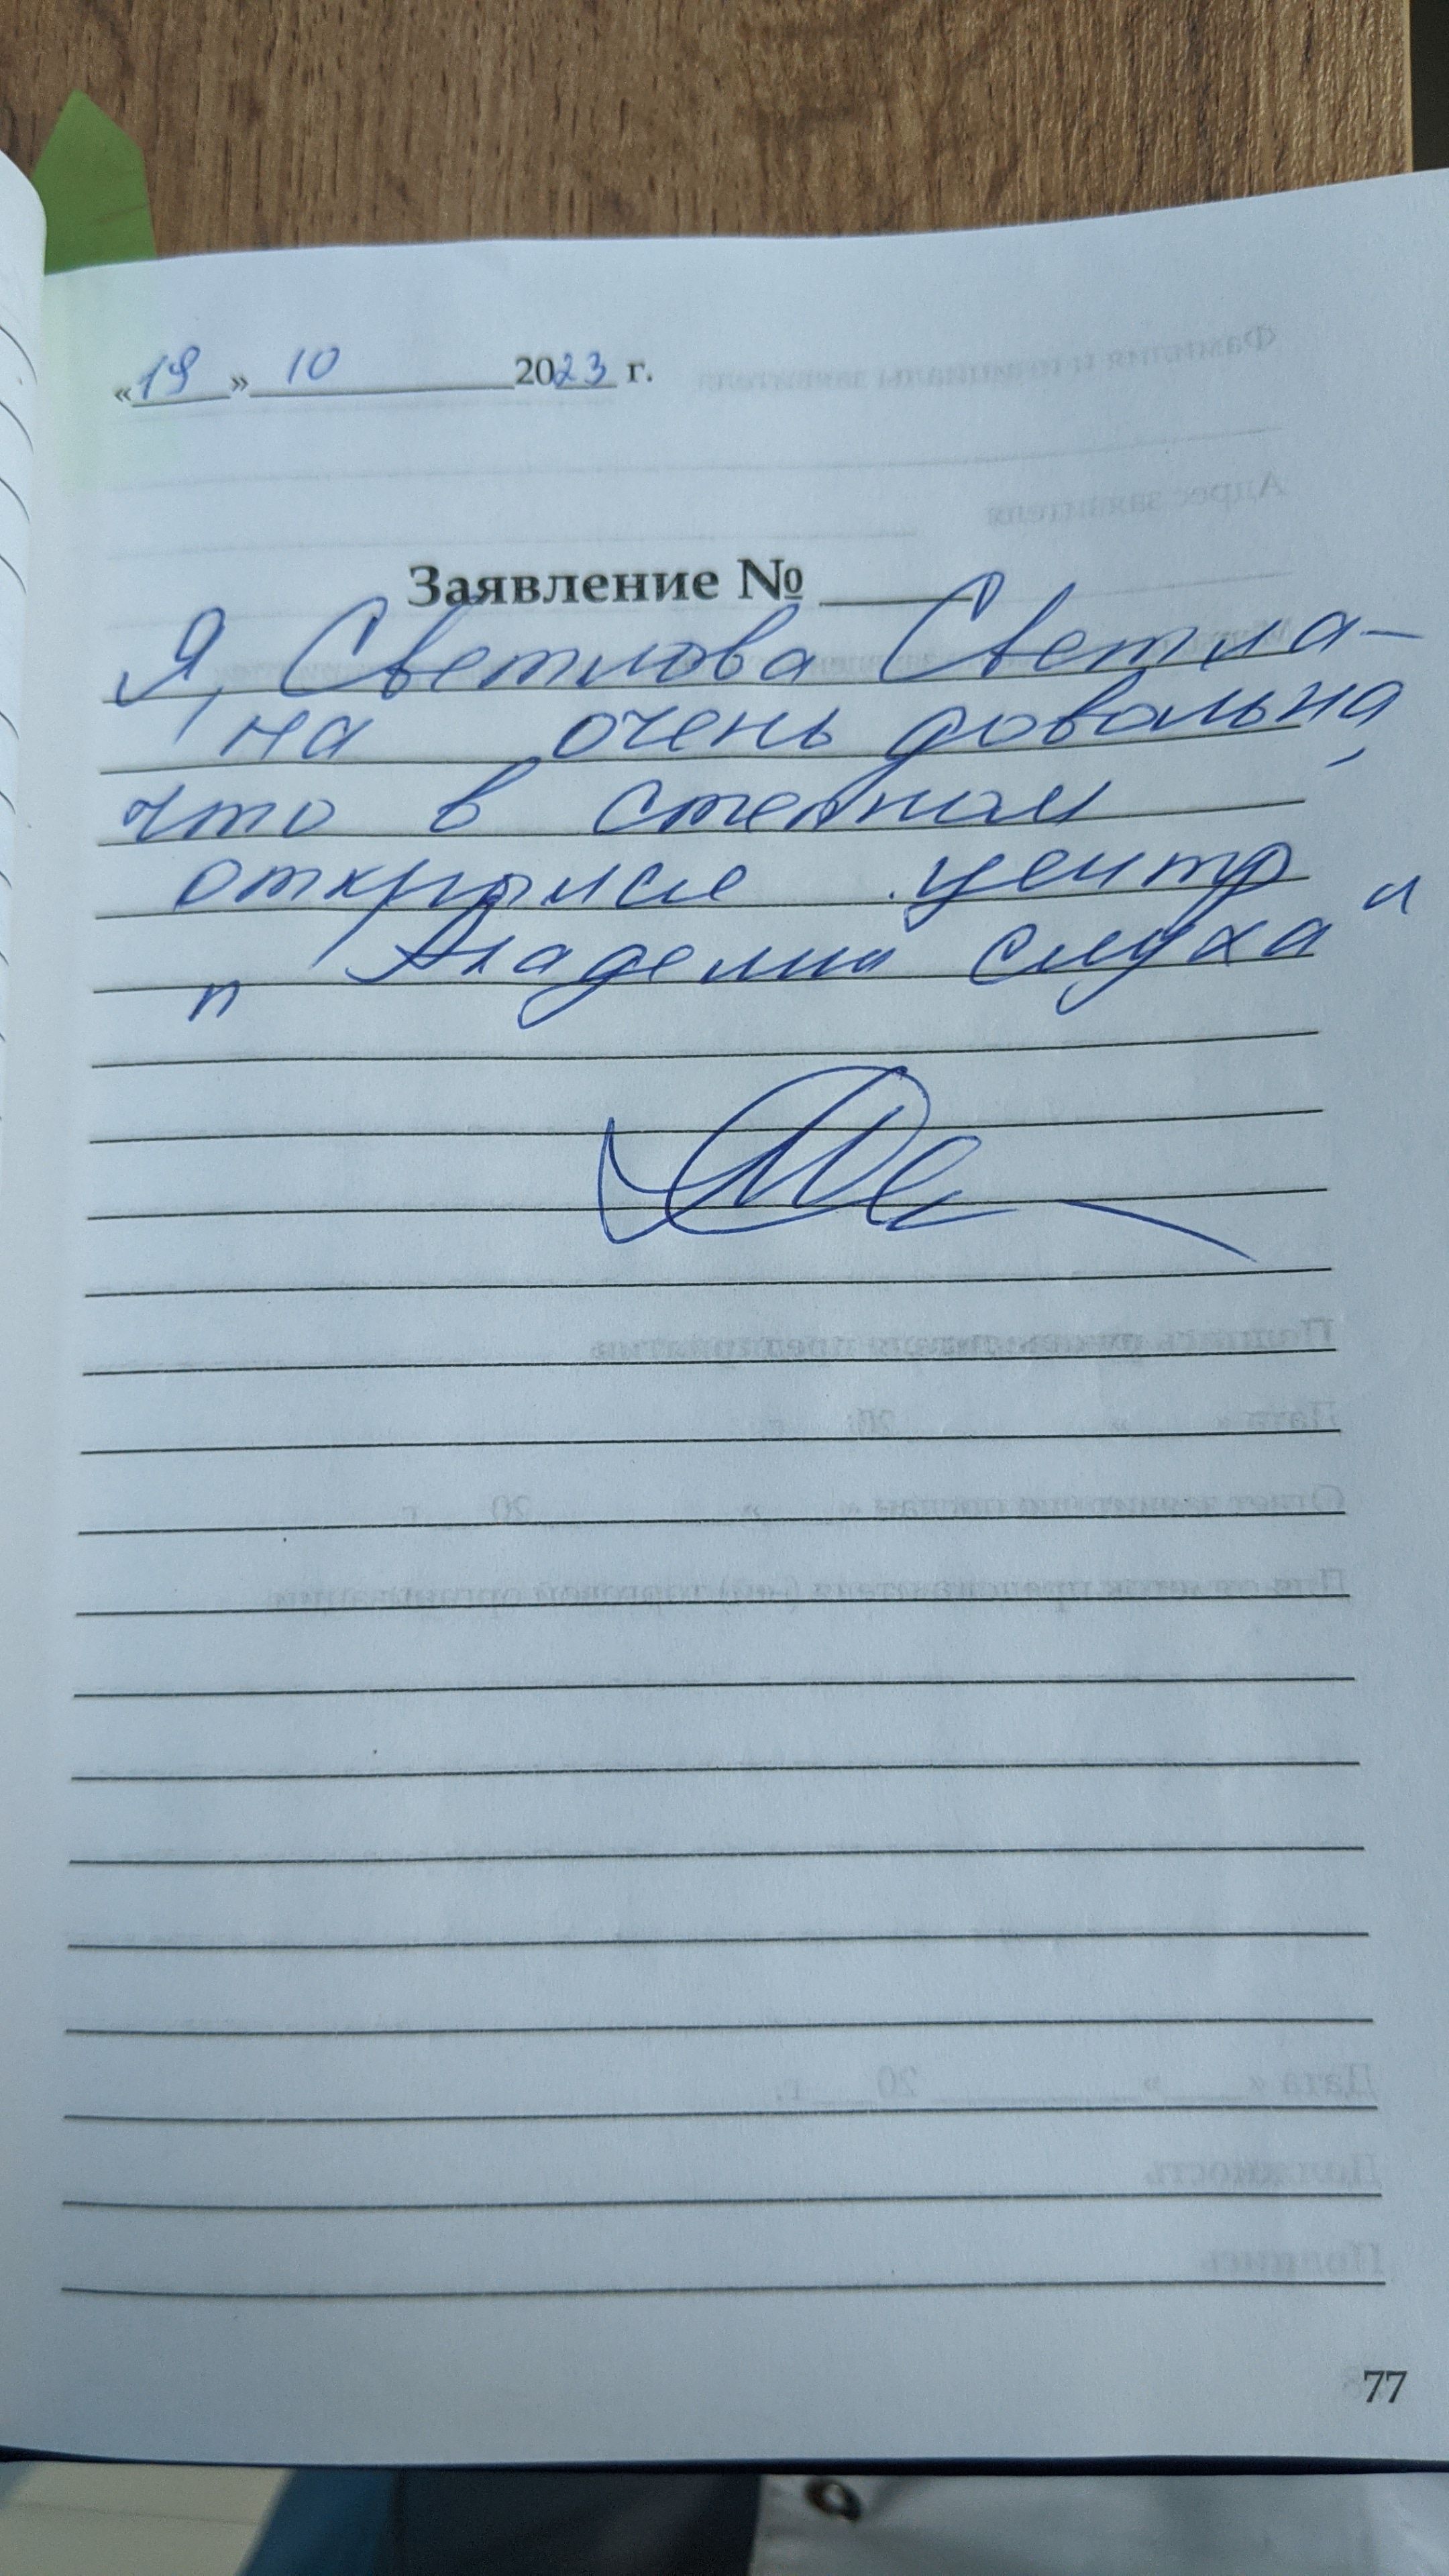 «19» 10 2023 г.
Заявление № ____
Я, Светлова Светла-
на очень довольна,
что в степном
открылся центр
"Академия слуха"
77